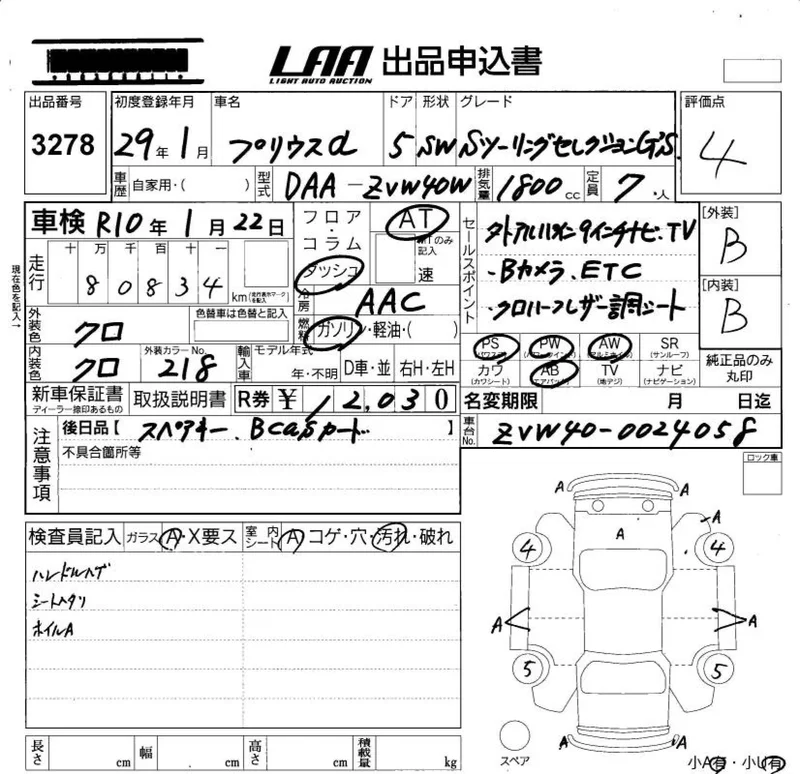 LAA 出品申込書
LIGHT AUTO AUCTION
出品番号 初度登録年月 車名 ドア 形状 グレード 評価点
3278 29年 1月 プリウスα 5 SW Sツーリングセレクション G'S 4
車歴 自家用・( ) 型式 DAA-ZVW40W 排気量 1800cc 定員 7・人
車検 R10年 1月 22日 フロア・コラム AT セールスポイント [外装]
ダッシュ MTのみ記入 速 B
走行 十 万 千 百 十 一
80834 km(走行表示マークを記入)
現在色を記入→
冷房 AAC
・Bカメラ、ETC [内装]
B
外装色 クロ 色替車は色替と記入 燃料 ガソリン・軽油・( )
内装色 クロ 外装カラーNo. 218 輸入車 モデル年式 年・不明 D車・並 右H・左H
PS(パワステ) PW(パワーウインド) AW(アルミホイル) SR(サンルーフ)
カワ(カワシート) AB(エアバック) TV(地デジ) ナビ(ナビゲーション)
純正品のみ丸印
新車保証書 ディーラー捺印あるもの 取扱説明書 R券 ¥ 12,030 名変期限 月 日迄
注意事項 後日品【 スペアキー、Bcasカード 】 車台No. ZVW40-0024058
不具合箇所等
ロック車
検査員記入 ガラス A・X要ス 室内シート A コゲ・穴・汚れ・破れ
ハンドルハゲ
シートヘタリ
ホイルA
A A
A A
4 4
A A
5 5
A A
スペア 小A有・小U有
長さ cm 幅 cm 高さ cm 積載量 kg